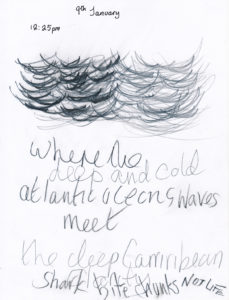 9th January
12:25pm
where the
deep and cold
atlantic oceans waves
meet
the deep Carribean
Shark Bite chunks NOT LIFE